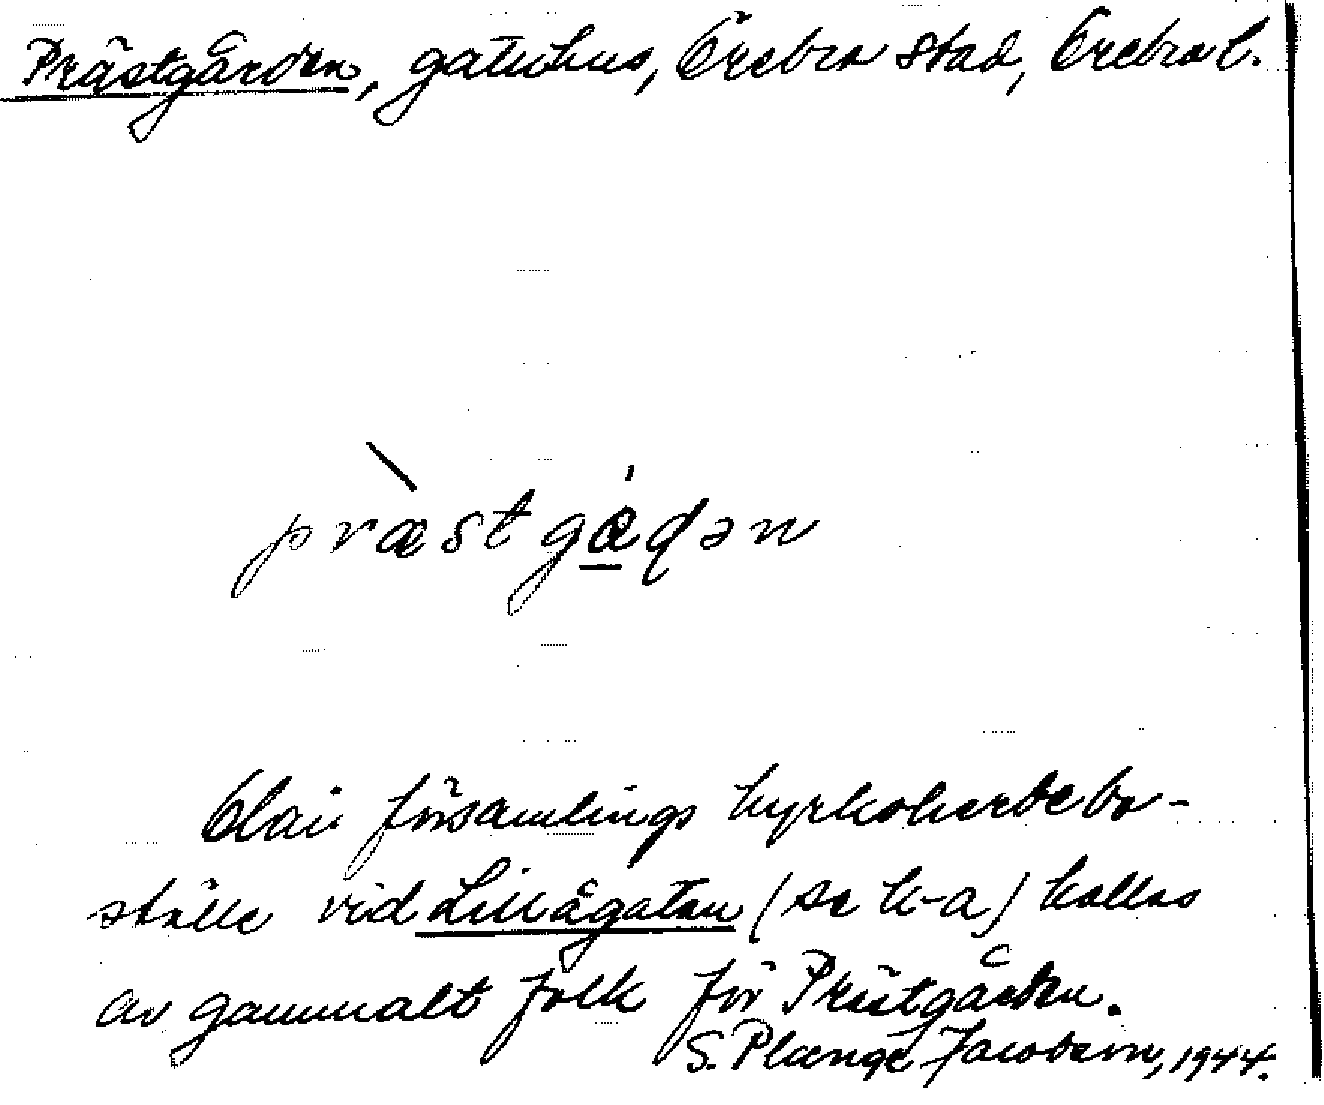 Prästgården, gatuhus, Örebro stad, Örebro l.
præstgɑ́ḍən
Olai församlings kyrkoherdebo-
ställe vid Lillågatan (se h-a) kallas
av gammalt folk för Prästgården.
S. Plænge Jacobson, 1944.